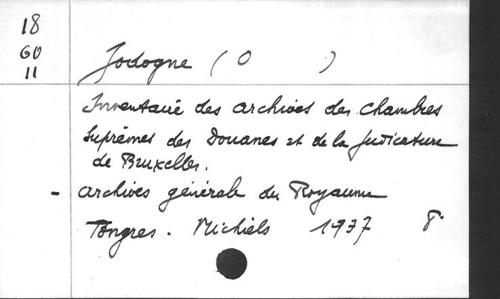 18
GO
11
Jodogne (O )
Inventaire des archives des Chambres
Suprêmes des Douanes et de la Judicature
de Bruxelles.
- Archives générales du Royaume
Tongres. Michiels 1937 8°